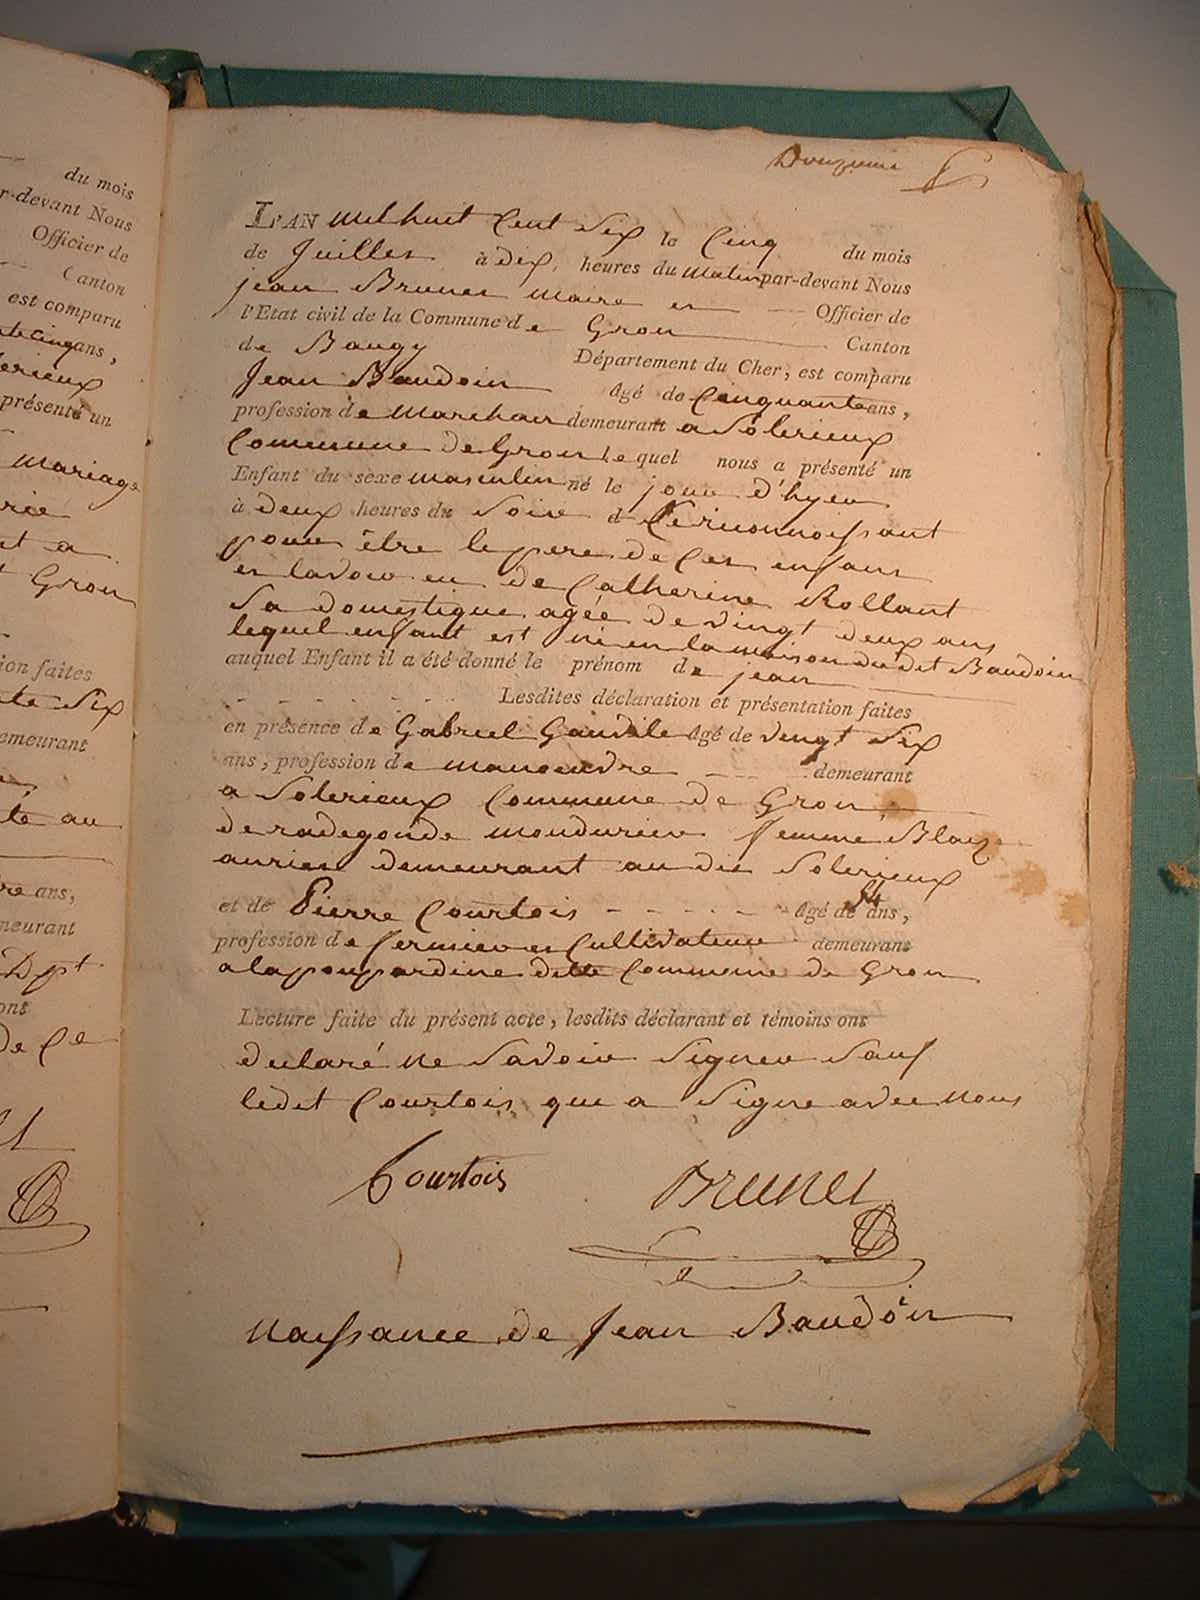 du mois
r-devant Nous
Officier de
Canton
est comparu
ans,
présenté un
mariage
et a
Gron
ion faites
Six
emeurant
te au
re ans,
meurant
Dpt
ont
de Ce
Douzieme
L'AN mil huit Cent Six le Cinq du mois
de Juillet à dix heures du matin par-devant Nous
jean Brunet maire et Officier de
l'Etat civil de la Commune de Gron Canton
de Baugy Département du Cher, est comparu
Jean Baudoin âgé de Cinquante ans,
profession de marchan demeurant a Solerieux
Commune de Gron lequel nous a présenté un
Enfant du sexe masculin né le jour d'hyer
à deux heures du Soir d Reconnoissant
pour être le pere de Cet enfant
et lavoir eu de Catherine Rollant
Sa domestique agée de vingt deux ans
lequel enfant est né en la maison du dit Baudoin
auquel Enfant il a été donné le prénom de jean
Lesdites déclaration et présentation faites
en présence de Gabriel Gaudile âgé de vingt Six
ans, profession de manoeuvre demeurant
a Solerieux Commune de Gron
de radegonde femme Blaiz
demeurant au dit Solerieux
et de Pierre Courtois âgé de ans,
profession de fermier et Cultivateur demeurant
a la poupardine ditte Commune de Gron
Lecture faite du présent acte, lesdits déclarant et témoins ont
déclaré ne Savoir Signer Sauf
ledit Courtois qui a Signé avec nous
Courtois Brunet
Naissance de Jean Baudoin